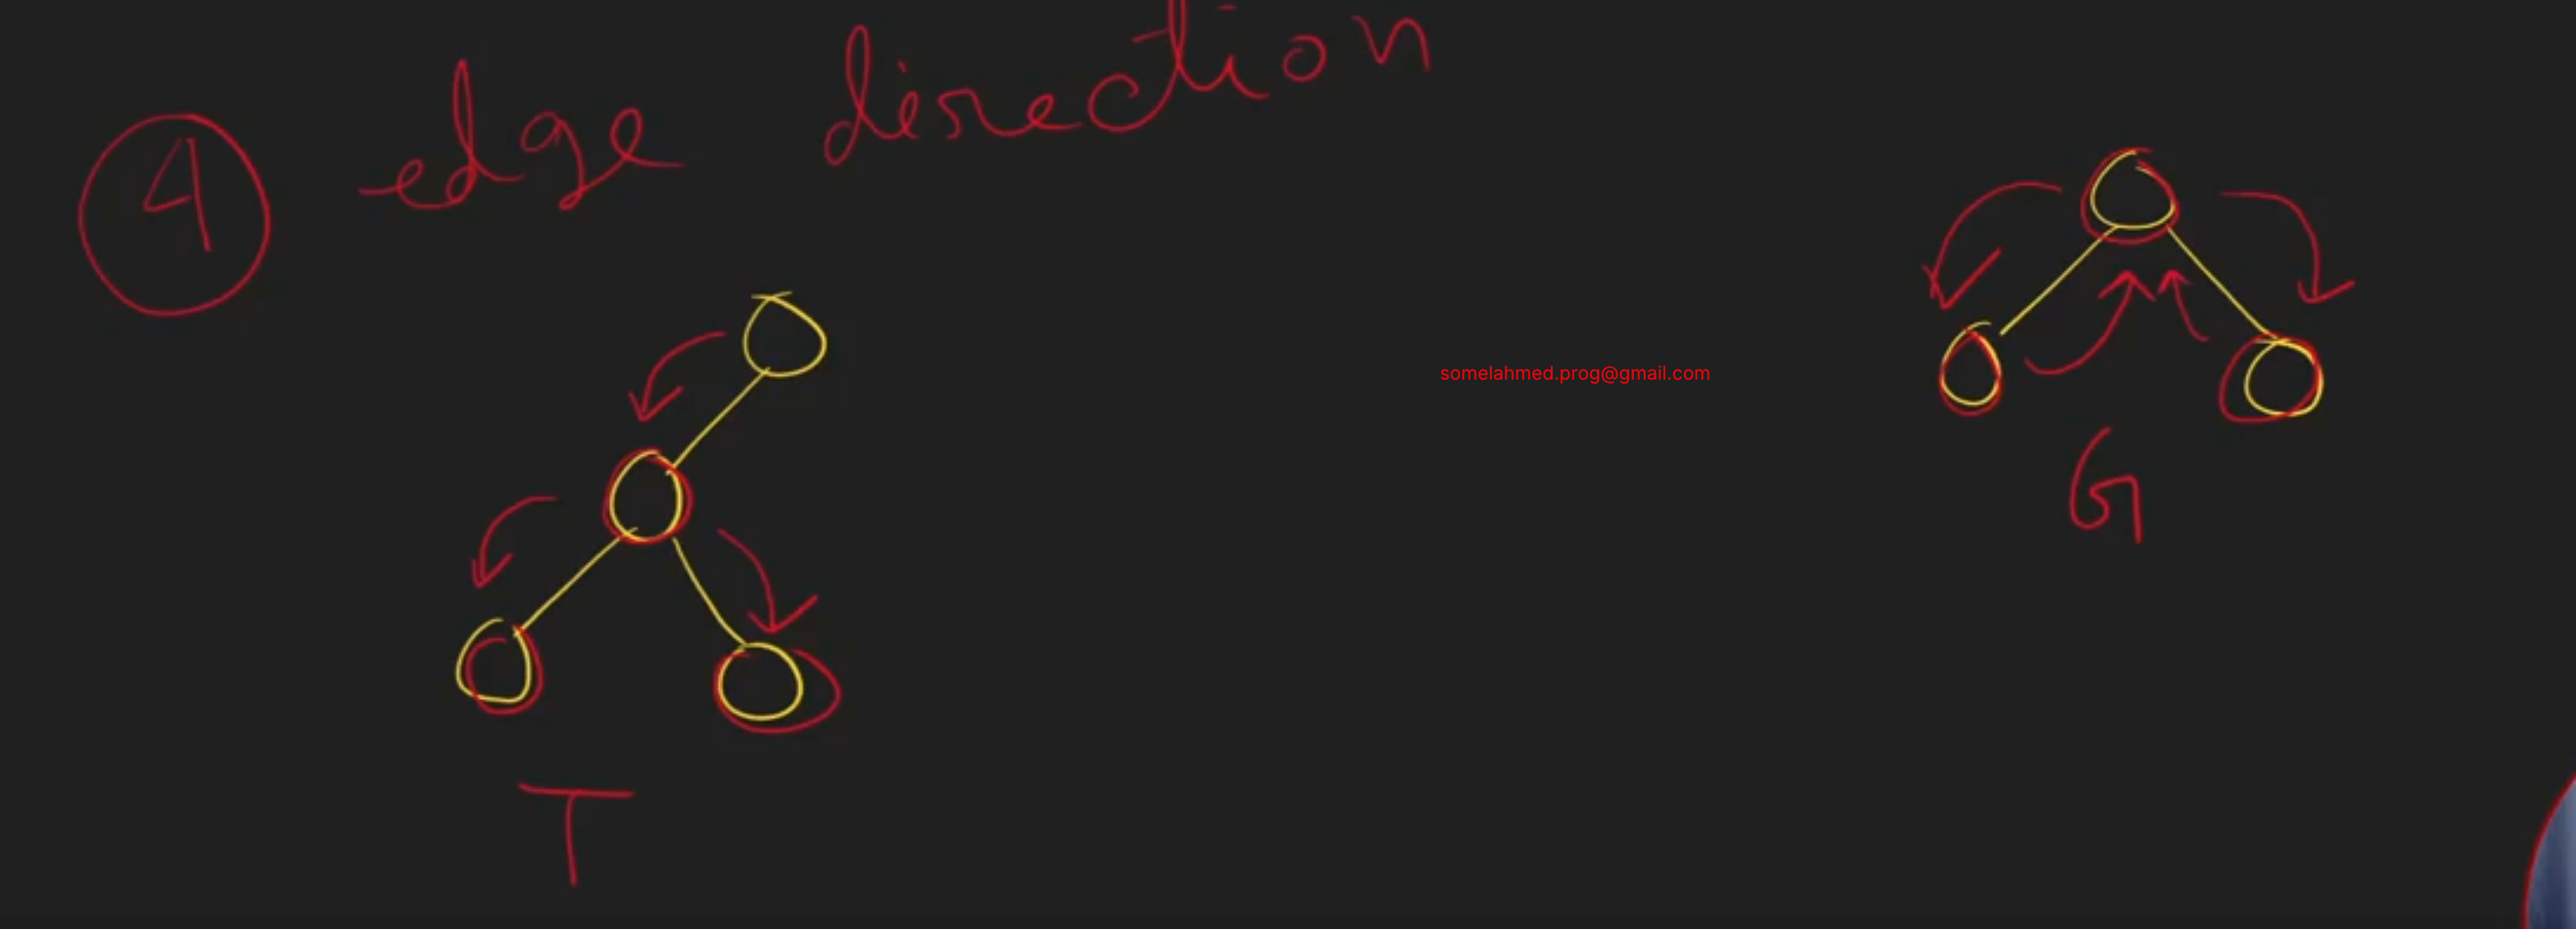 4 edge direction
somelahmed.prog@gmail.com
G
T